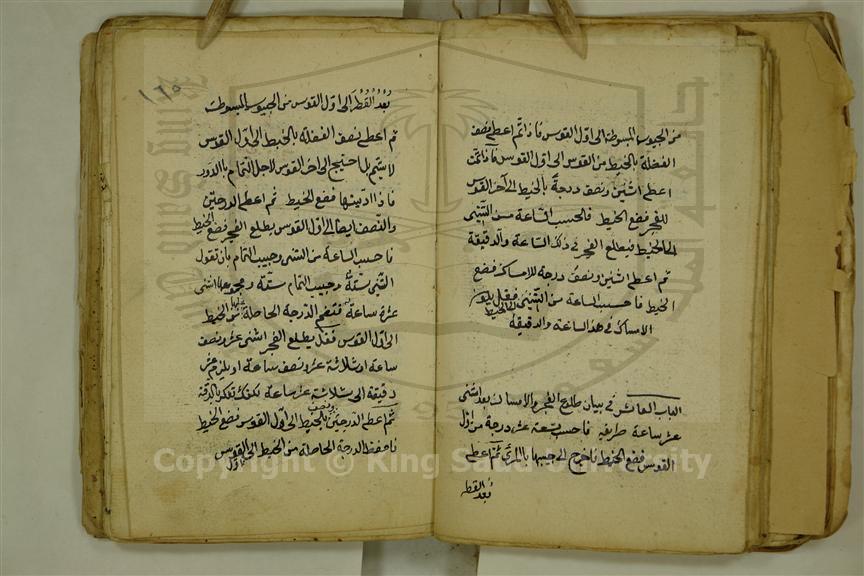 من الجيوب المبسوطة الى اول القوس فاذا تم اعطى نصف
الفضلة بالخيط من القوس الى اول القوس فاذا تمت
اعطى اثنين ونصف درجة بالخيط الى آخر القوس
للفجر فضع الخيط فاحسب الساعة من الستيني
الى الخيط فيطلع الفجر في ذلك الساعة والدقيقة
ثم اعطى اثنين ونصف درجة للامساك فضع
الخيط فاحسب الساعة من الستيني الى الخيط فقل
الامساك في هذ الساعة والدقيقة
الباب العاشر في بيان طلوع الفجر والامساك بعد اثنى
عشر ساعة طريقه فاحسب تسعة عشر درجة من اول
القوس فضع الخيط فاخرج الى جيبها بالمرى ثم اعطى
بعد القطر
١٦٥
بعد القطر الى اول القوس من الجيوب المبسوطة
ثم اعطى نصف الفضلة بالخيط الى اول القوس
لا يتم بل احتيج الى اخر القوس لاجل التمام بالدور
فاذا اديتها فضع الخيط ثم اعطى الدرجتين
والنصف ايضا الى اول القوس يطلع الفجر فضع الخيط
فاحسب الساعة من الستيني وجيب التمام بان تقول
الستيني ستة وجيب التمام ستة ومجموعها اثنى
عشر ساعة فتضم الدرجة الحاصلة من الخيط
الى اول القوس فقل يطلع الفجر اثنى عشر ونصف
ساعة او ثلاثة عشر ونصف ساعة او بلزم عشر
دقيقة الى ثلاثة عشر ساعة لكن تفكر بالدقة
ثم اعطى الدرجتين ونصف بالخيط الى اول القوس فضع الخيط
فاحفظ الدرجة الحاصلة من الخيط الى اول القوس
Copyright © King Saud University